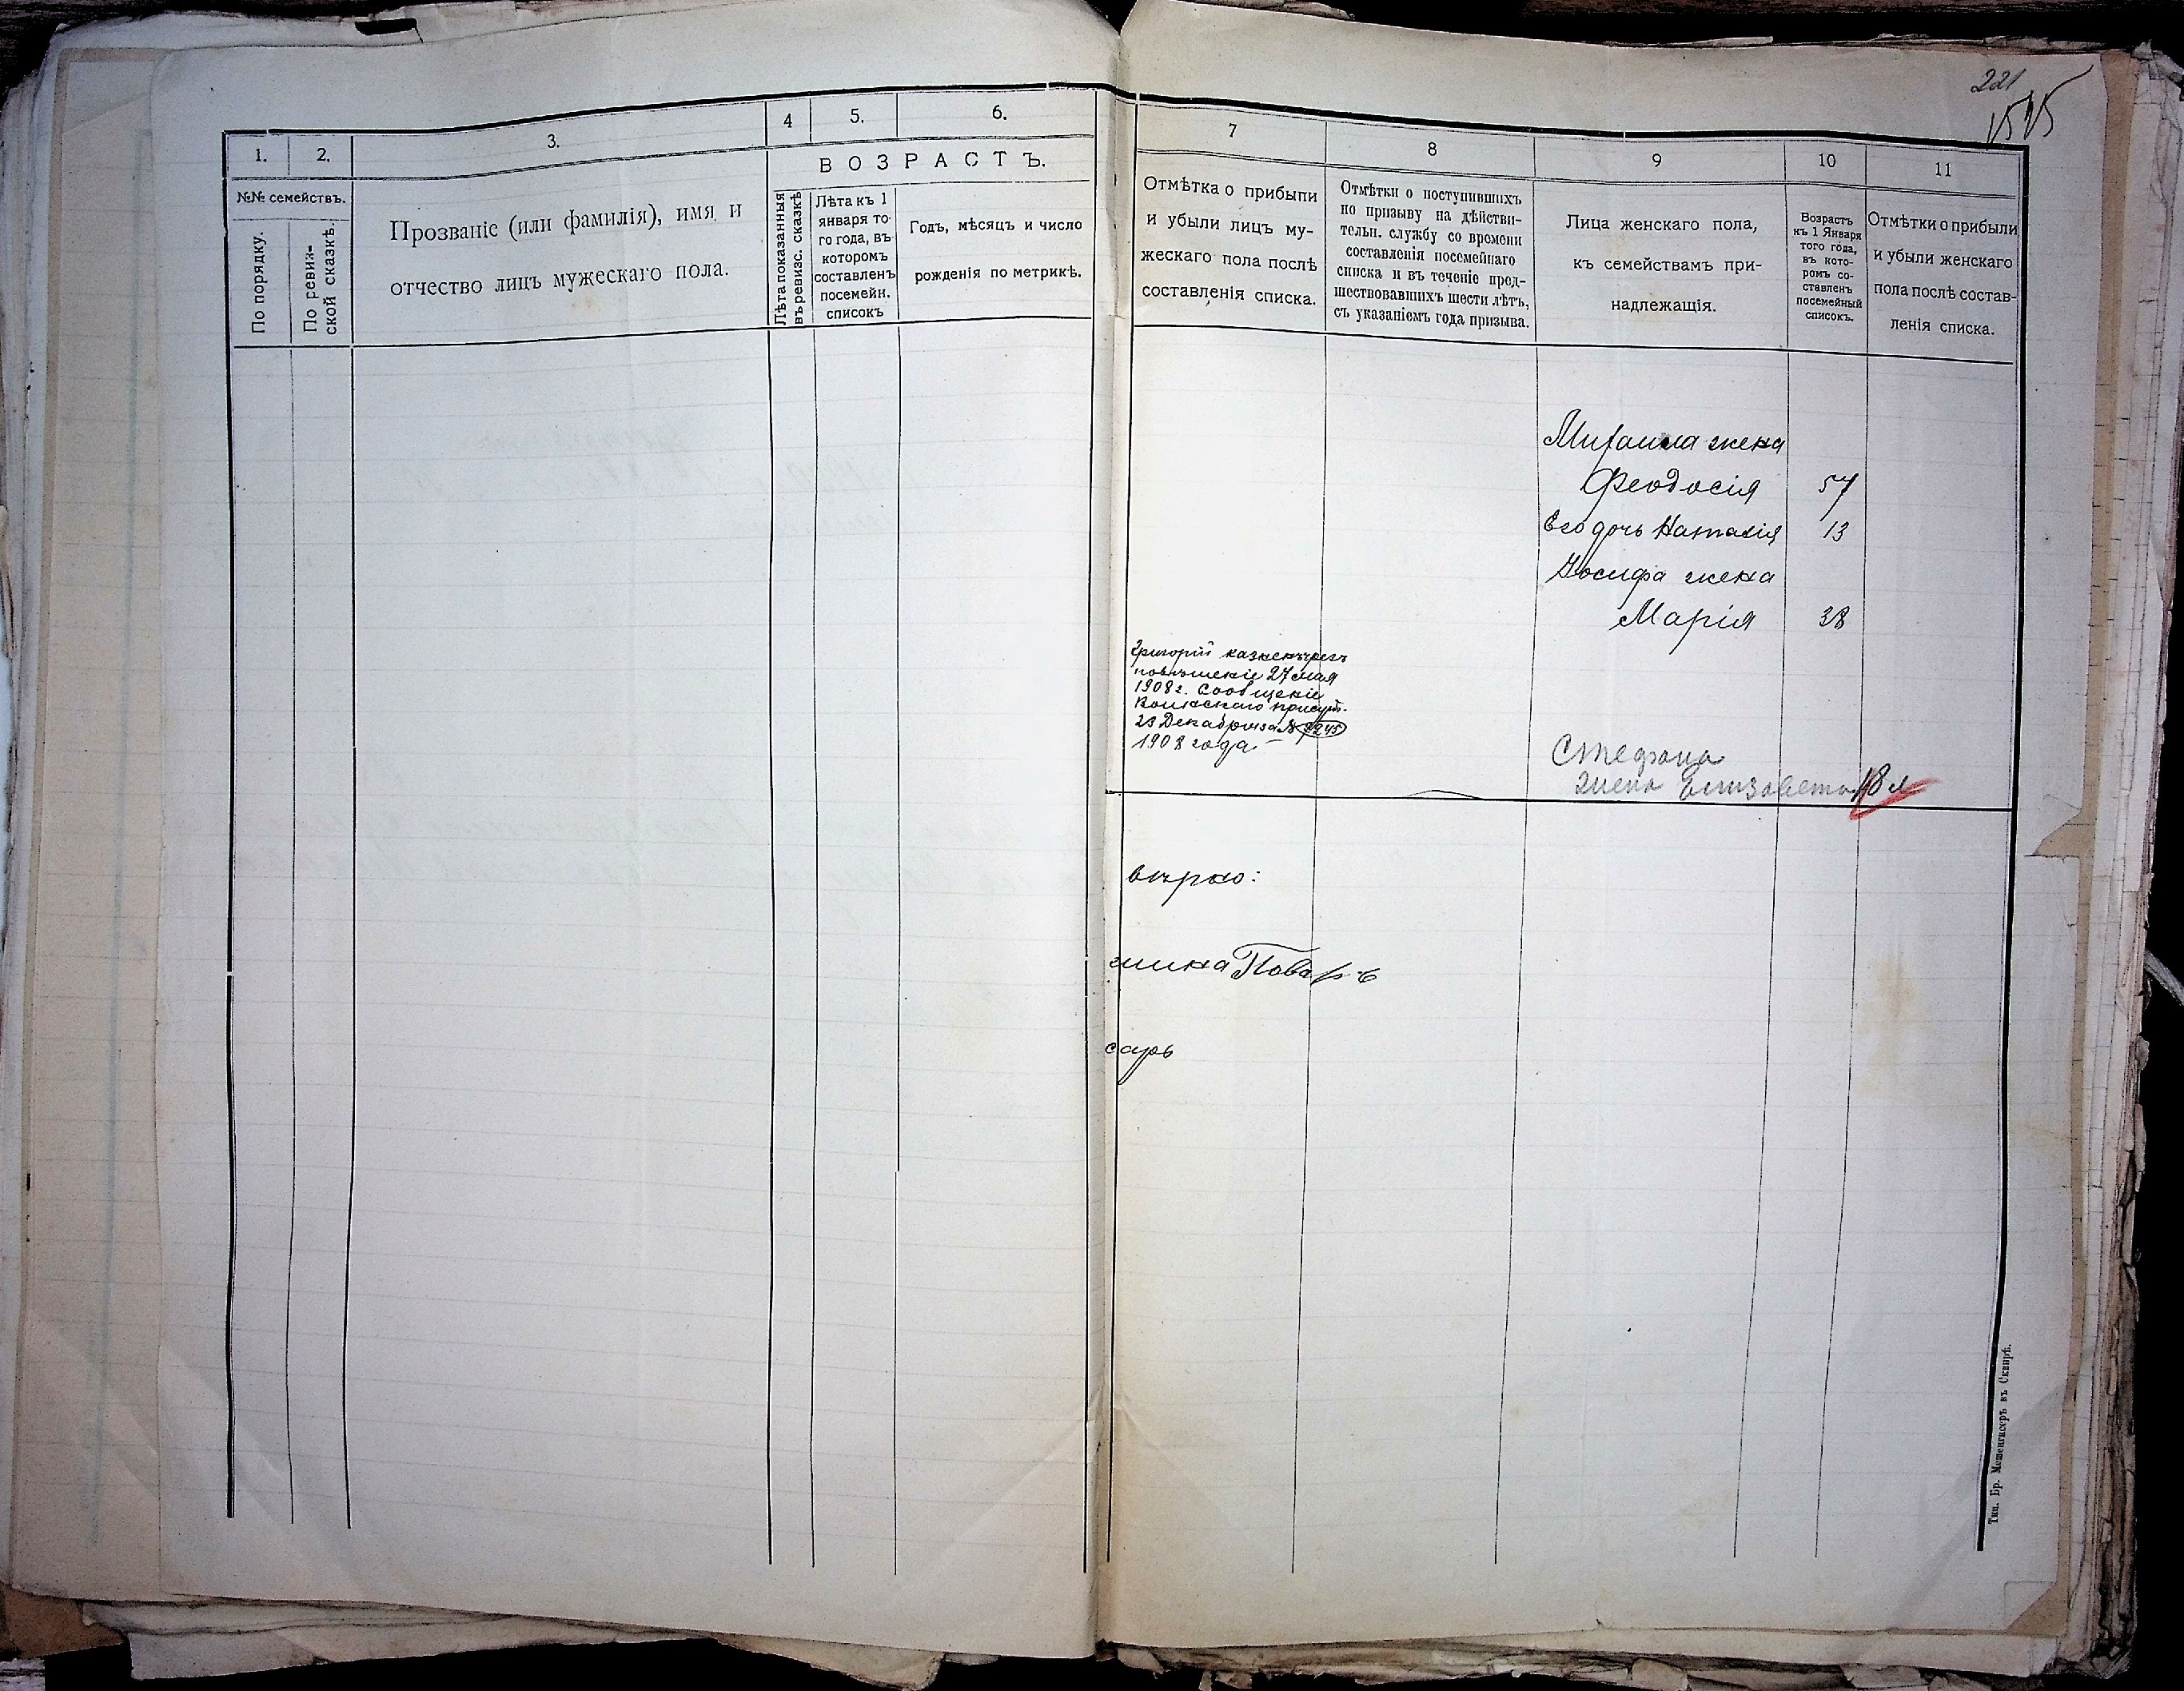 221
1515
1.
2.
3.
4
5.
6.
№№ семействъ.
По порядку.
По ревиз-
ской сказкѣ.
Прозваніе (или фамилія), имя и
отчество лицъ мужескаго пола.
ВОЗРАСТЪ.
Лѣта показанныя
въ ревизс. сказкѣ
Лѣта къ 1
января то-
го года, въ
которомъ
составленъ
посемейн.
списокъ
Годъ, мѣсяцъ и число
рожденія по метрикѣ.
7
8
9
10
11
Отмѣтка о прибыли
и убыли лицъ му-
жескаго пола послѣ
составленія списка.
Отмѣтки о поступившихъ
по призыву на дѣйстви-
тельн. службу со времени
составленія посемейнаго
списка и въ теченіе пред-
шествовавшихъ шести лѣтъ,
съ указаніемъ года призыва.
Лица женскаго пола,
къ семействамъ при-
надлежащія.
Возрастъ
къ 1 Января
того года,
въ кото-
ромъ со-
ставленъ
посемейный
списокъ.
Отмѣтки о прибыли
и убыли женскаго
пола послѣ состав-
ленія списка.
Михаила жена
Феодосія 57
Его дочь Наталія 13
Иосифа жена
Марія 38
Григорій казненъ чрезъ
повѣшеніе 27 мая
1908 г. Сообщеніе
Воинскаго присут.
23 Декабря за №
1908 года
Стефана
жена Елизавета 18 л
вѣрно:
шина Поваръ
сарь
Тип. Бр. Мешенгисеръ въ Сквирѣ.